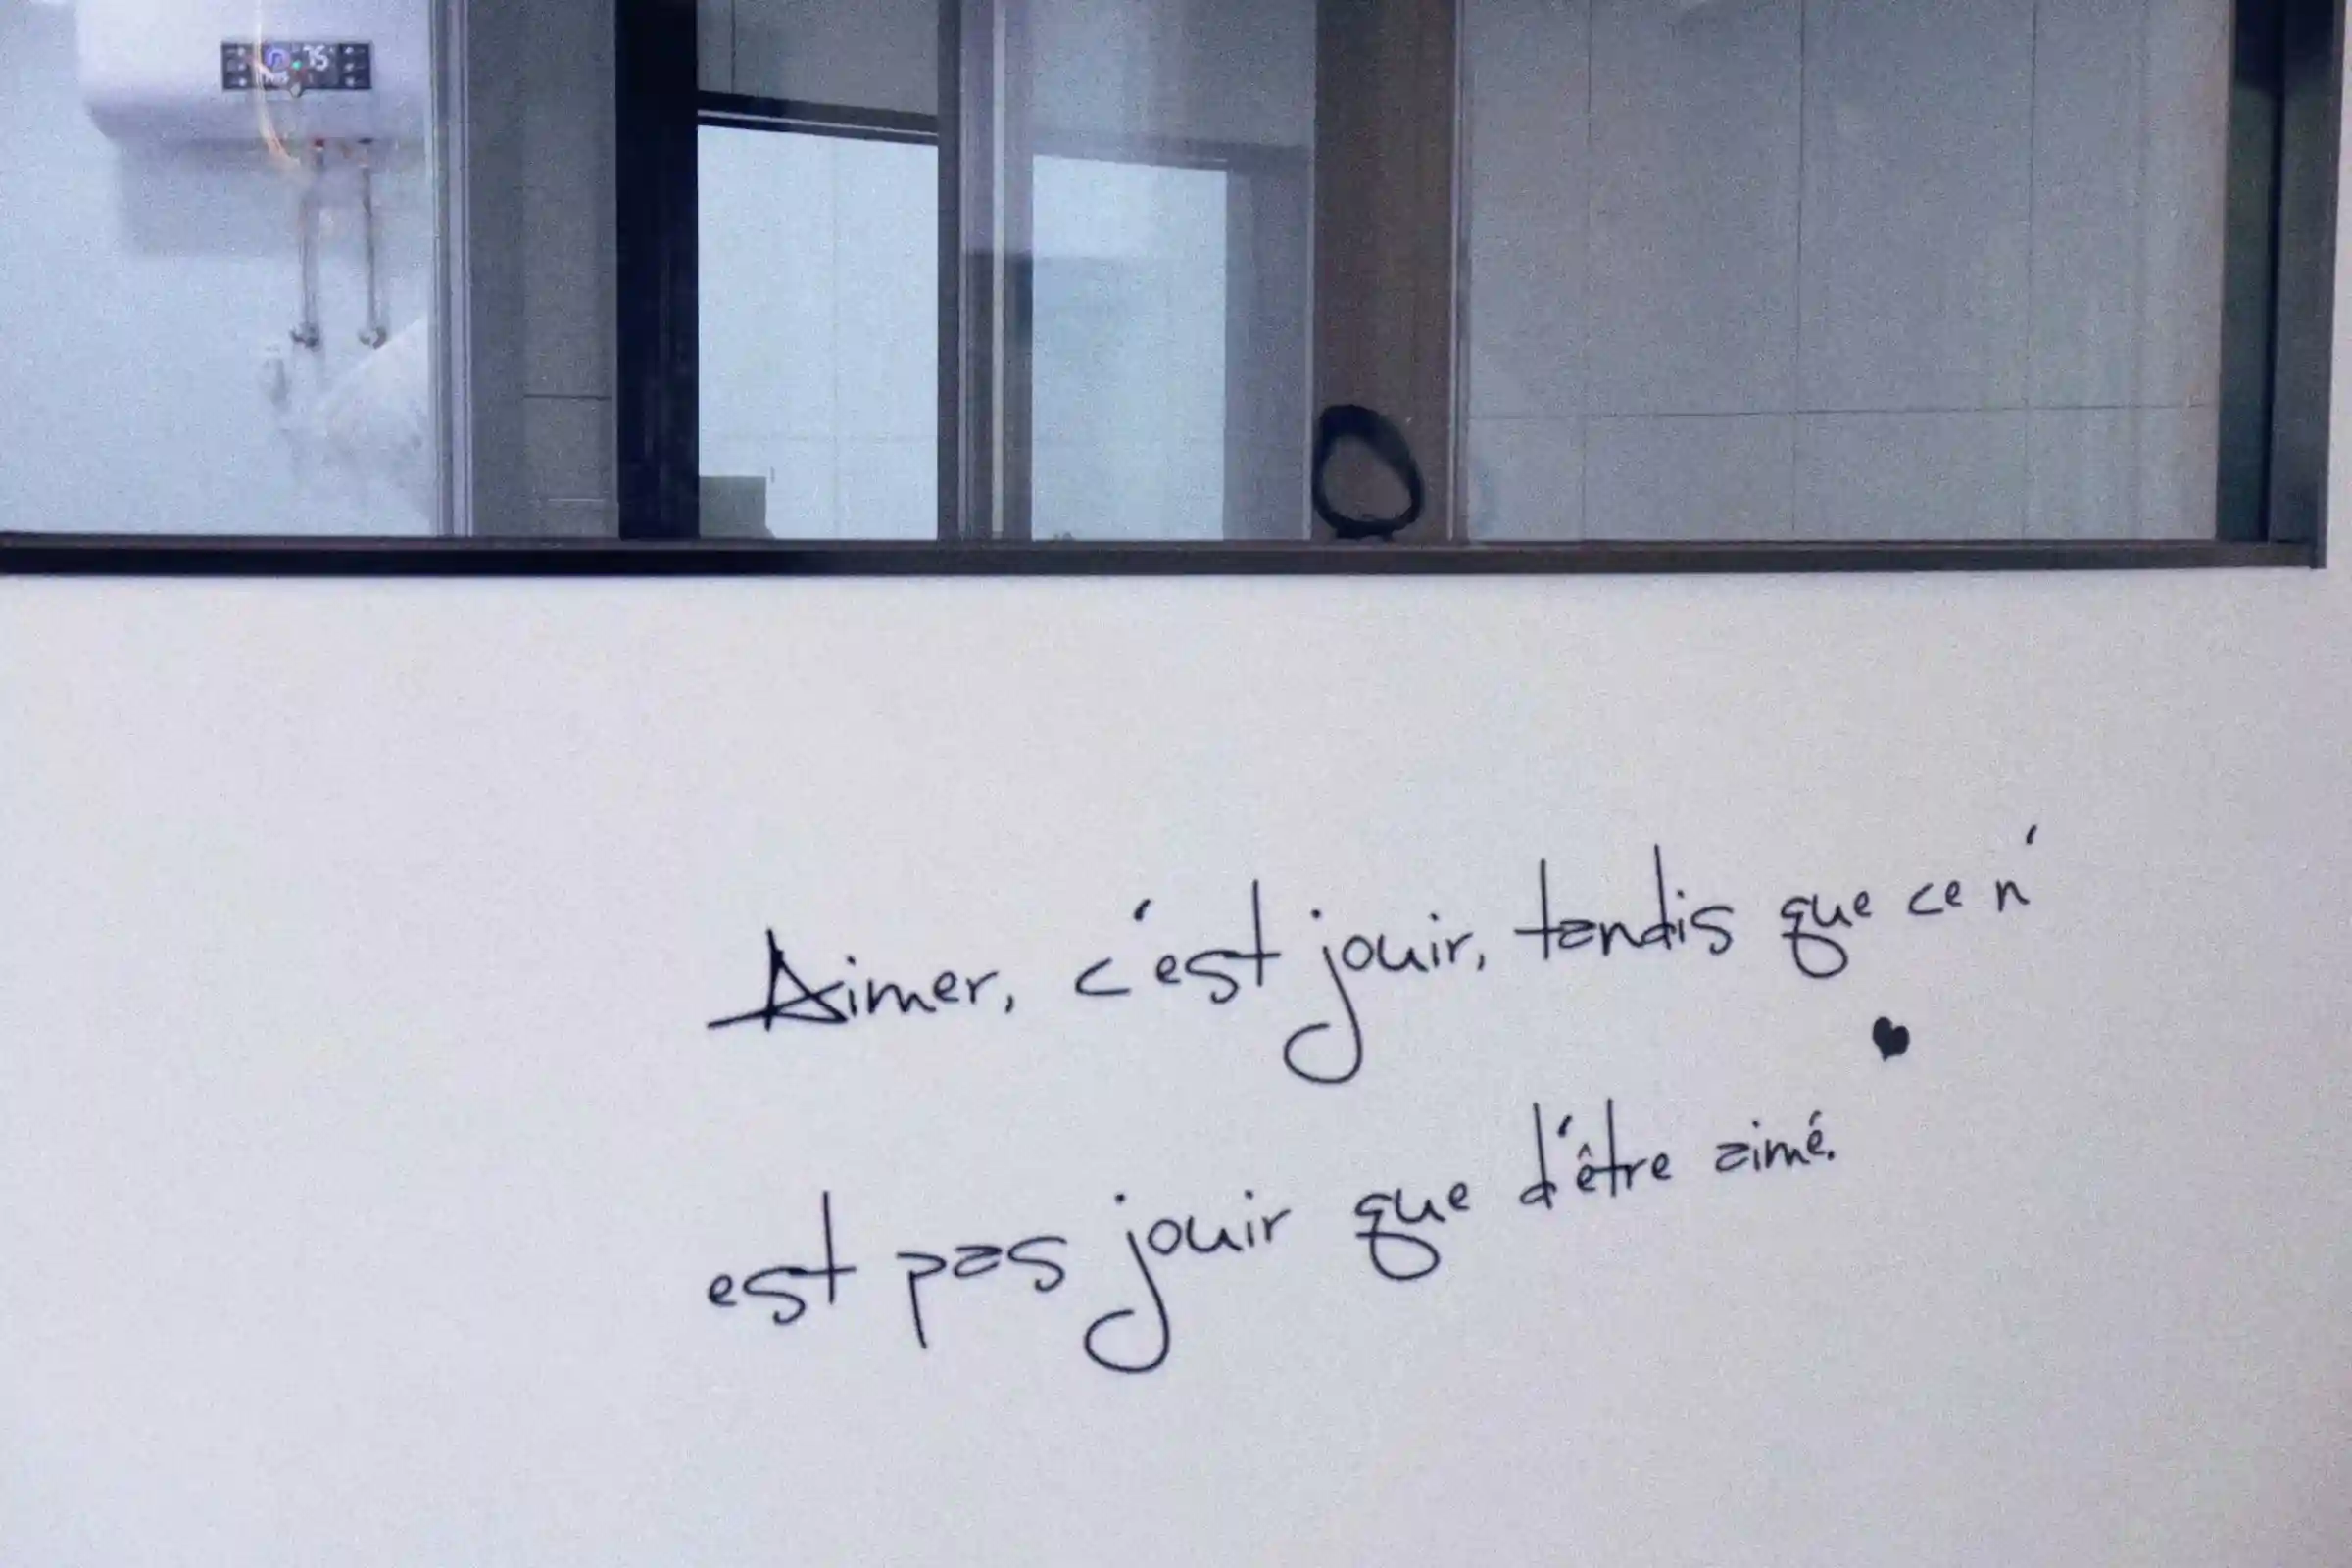 75
Aimer, c'est jouir, tandis que ce n'
est pas jouir que d'être aimé.